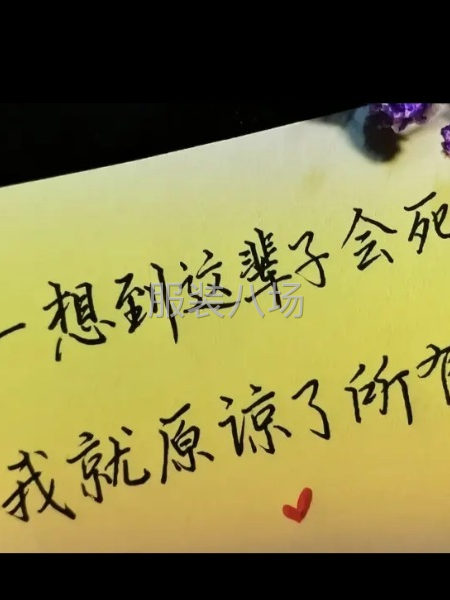 一想到这辈子会死
我就原谅了所有
服装八场